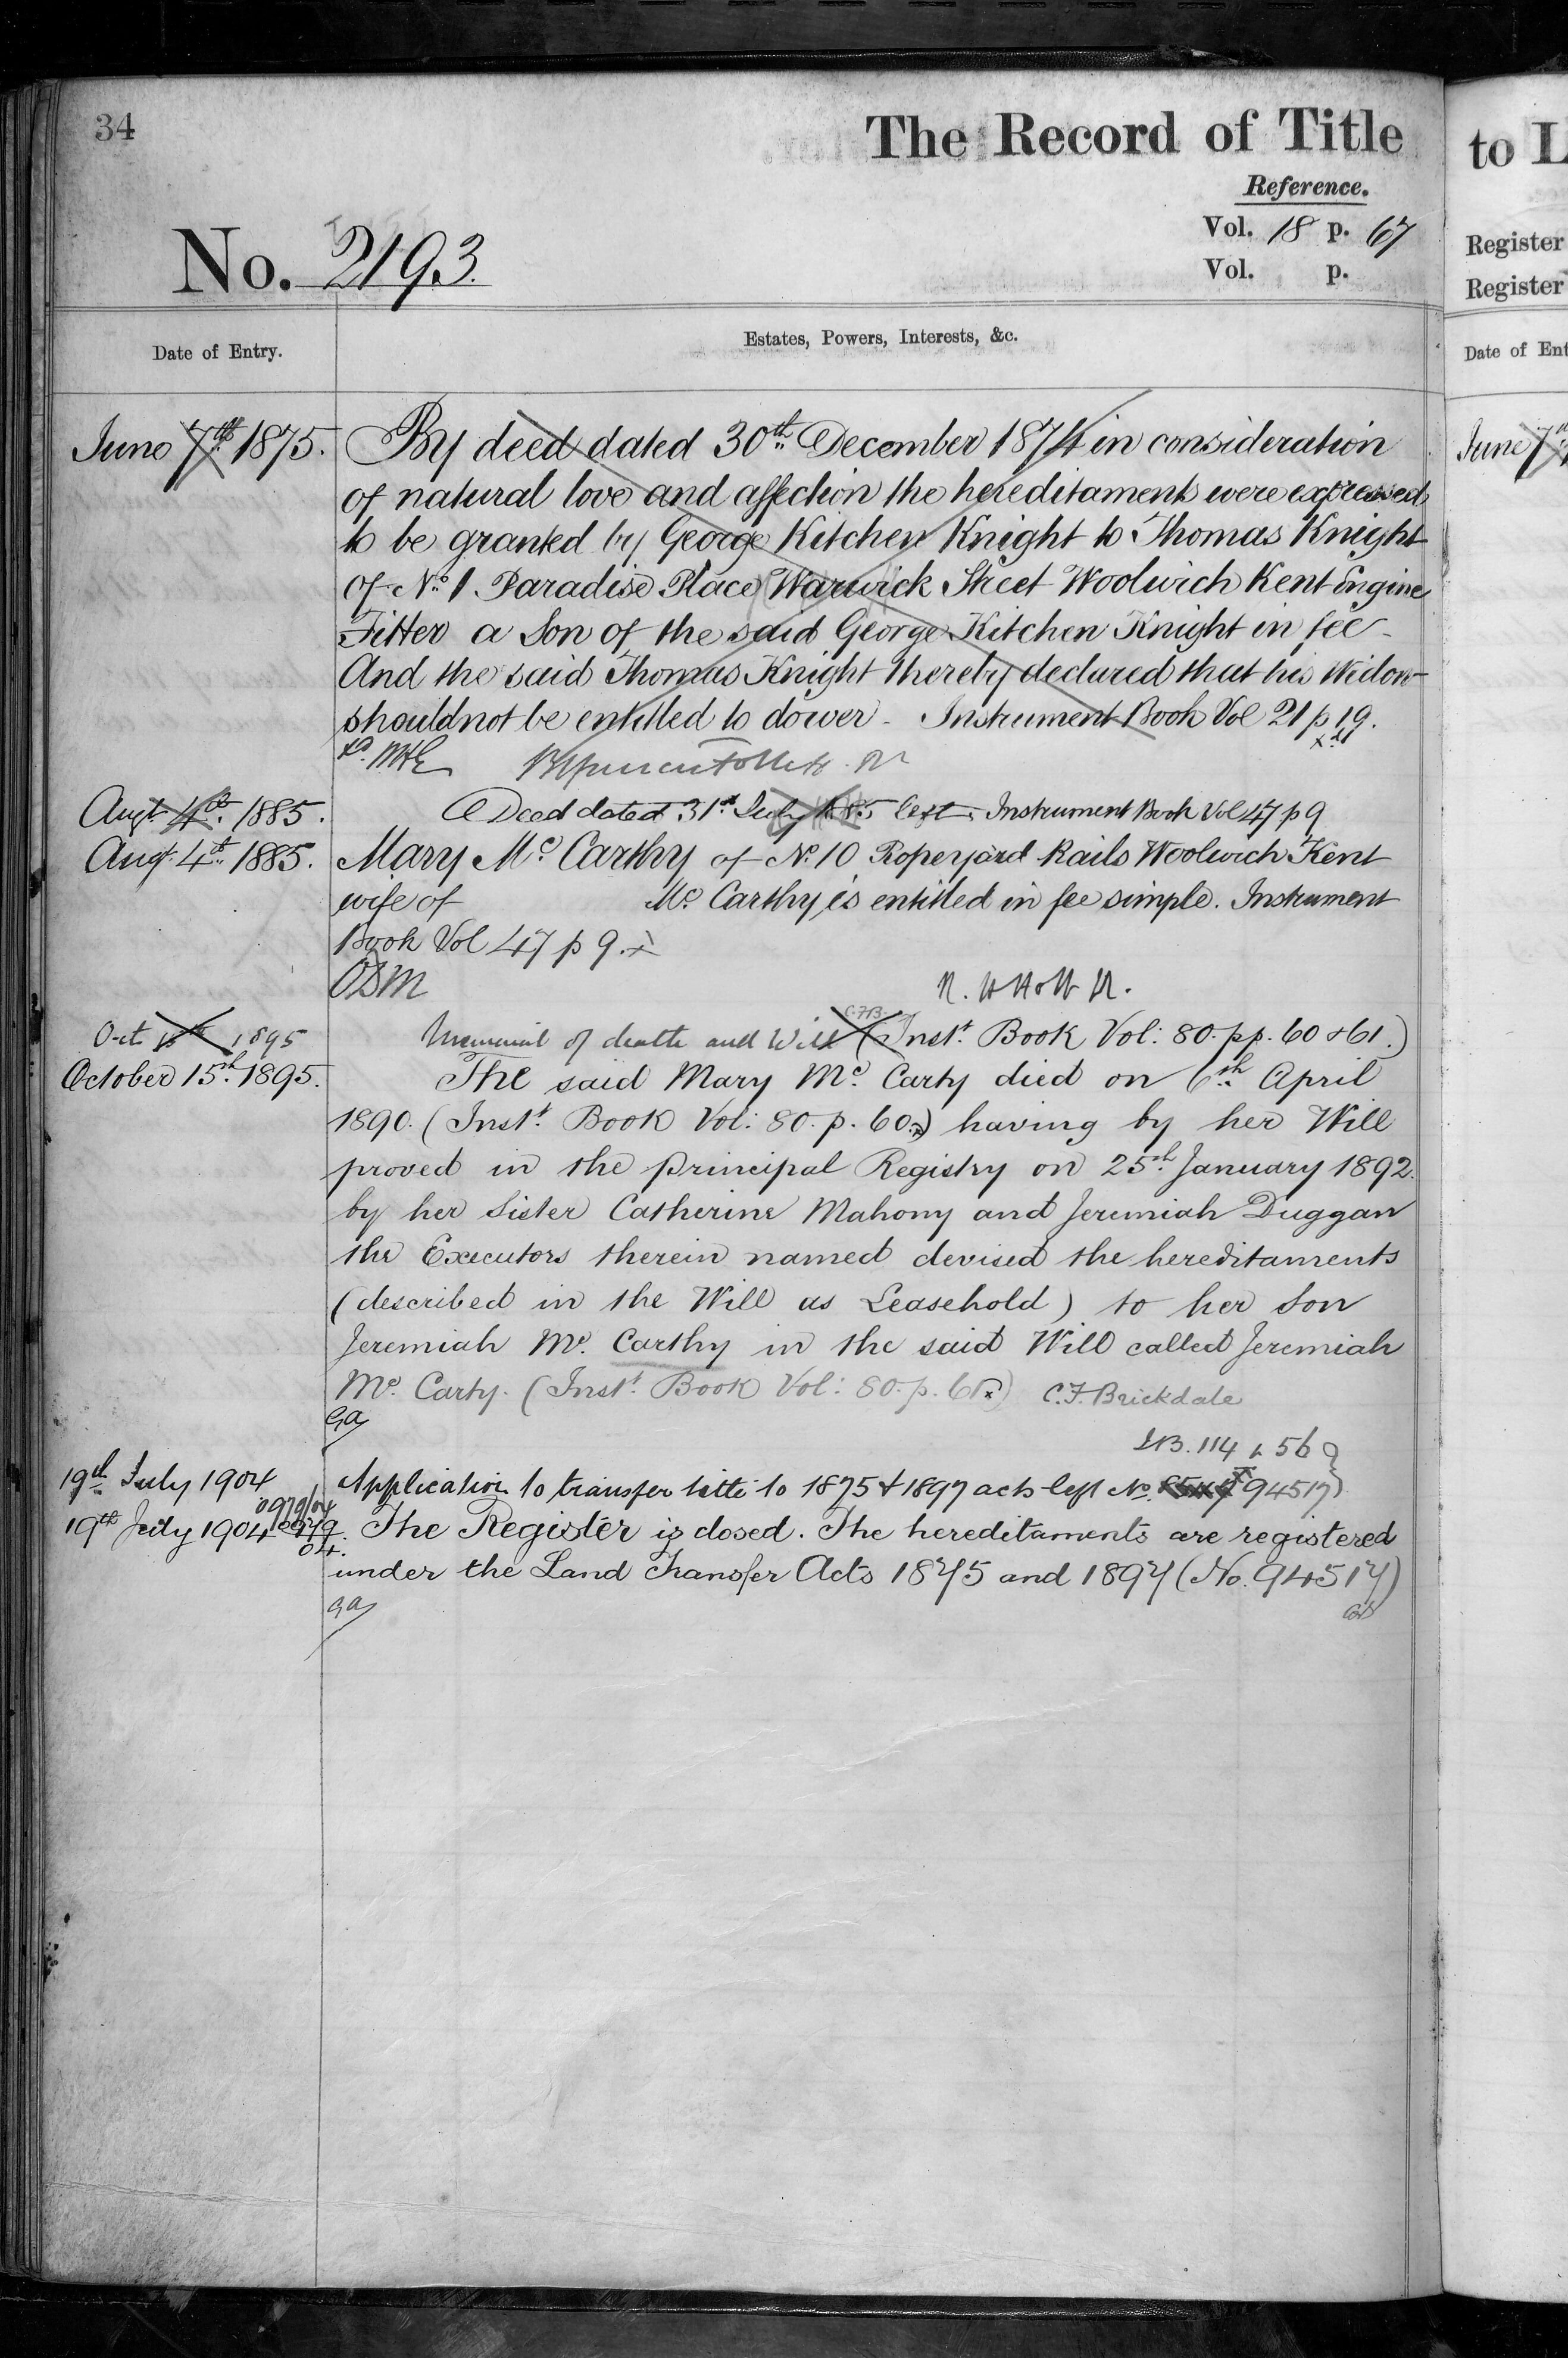 34
The Record of Title
Reference.
Vol. 18 p. 67
Vol. p.
No. 2193.
Date of Entry.
Estates, Powers, Interests, &c.
June 7th 1875. By deed dated 30th December 1874 in consideration
of natural love and affection the hereditaments were expressed
to be granted by George Kitchen Knight to Thomas Knight
of No 1 Paradise Place Warwick Street Woolwich Kent Engine
Fitter a Son of the said George Kitchen Knight in fee -
And the said Thomas Knight thereby declared that his Widow
should not be entitled to dower - Instrument Book Vol 21 p 19.
Augt 4th 1885. A Deed dated 31st July 1885 left. Instrument Book Vol 47 p 9
Augt 4th 1885. Mary Mc Carthy of No 10 Ropeyard Rails Woolwich Kent
wife of Mc Carthy is entitled in fee simple. Instrument
Book Vol 47 p 9. x
Oct 15th 1895 Memorial of death and Will (Inst. Book Vol: 80. pp. 60 & 61.)
C.F.B.
October 15th 1895. The said Mary Mc Carty died on 6th April
1890. (Inst. Book Vol: 80. p. 60.x) having by her Will
proved in the Principal Registry on 25th January 1892.
by her Sister Catherine Mahony and Jeremiah Duggan
the Executors therein named devised the hereditaments
(described in the Will as Leasehold) to her Son
Jeremiah Mc. Carthy in the said Will called Jeremiah
Mc. Carty. (Inst. Book Vol: 80. p. 61x) C.F. Brickdale
GA
I.B. 114 p 569
19th July 1904 Application to transfer title to 1875 & 1897 acts left No. 94517)
19th July 1904 0979/04 The Register is closed. The hereditaments are registered
under the Land Transfer Acts 1875 and 1897 (No. 94517)
GA
to L
Register
Register
Date of Ent
June 7th